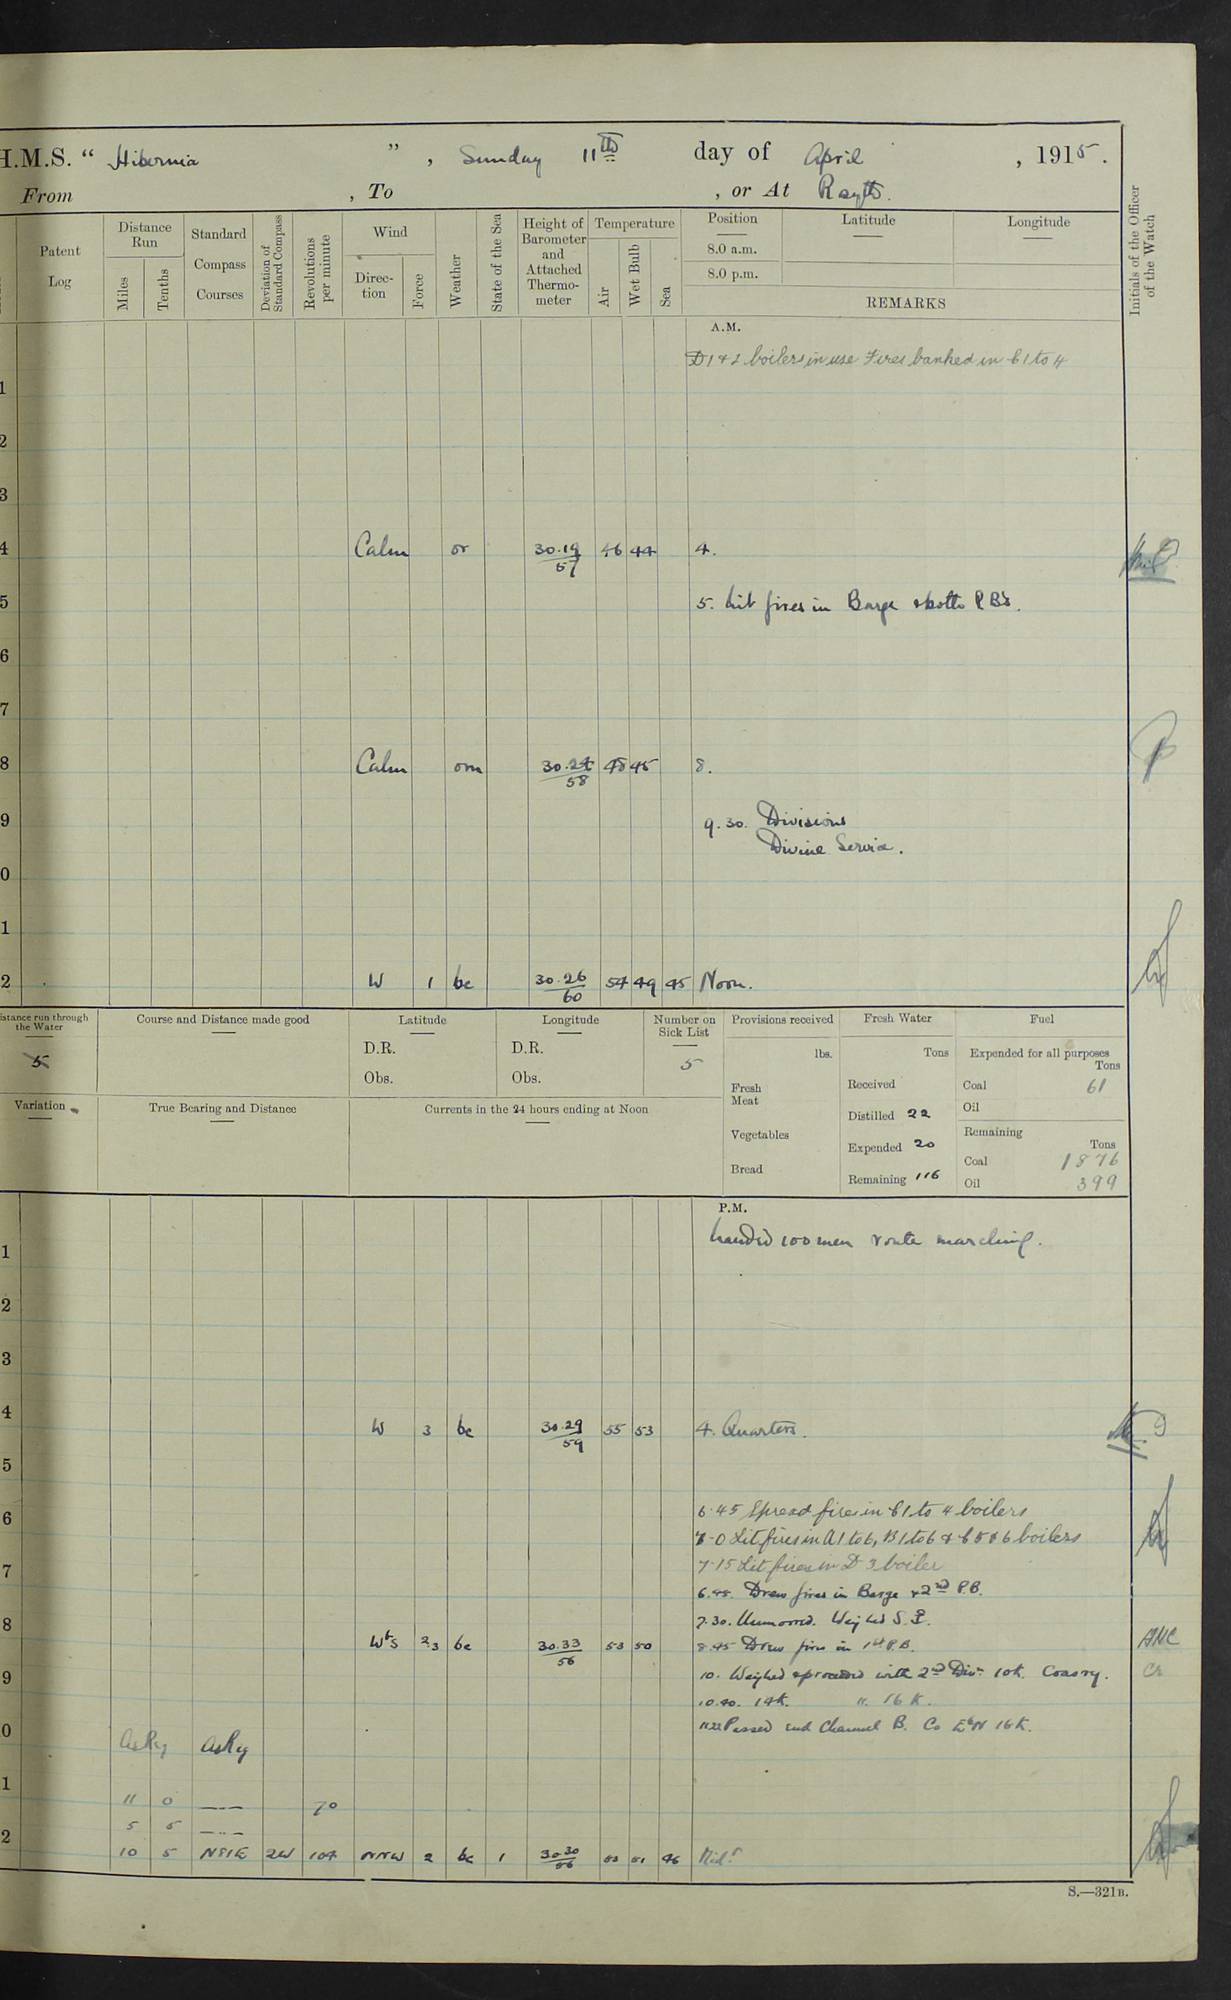 H.M.S. " Hibernia " , Sunday 11th day of April , 1915.
From , To , or At Rosyth.
Patent Log
Distance Run
Miles
Tenths
Standard Compass Courses
Deviation of Standard Compass
Revolutions per minute
Wind
Direction
Force
Weather
State of the Sea
Height of Barometer and Attached Thermometer
Temperature
Air
Wet Bulb
Sea
Position
8.0 a.m.
8.0 p.m.
Latitude
Longitude
REMARKS
Initials of the Officer of the Watch
A.M.
D 1 & 2 boilers in use Fires banked in C 1 to 4
1
2
3
4 Calm or 30.19/57 46 44 4.
5 5. Lit fires in Barge & both P.Bs.
6
7
8 Calm om 30.24/58 48 45 8.
9 9.30. Divisions
Divine Service.
0
1
2 W 1 bc 30.26/60 54 49 45 Noon.
istance run through the Water
5
Course and Distance made good
Latitude
D.R.
Obs.
Longitude
D.R.
Obs.
Number on Sick List
5
Provisions received
lbs.
Fresh Meat
Vegetables
Bread
Fresh Water
Tons
Received
Distilled 22
Expended 20
Remaining 116
Fuel
Expended for all purposes
Tons
Coal 61
Oil
Remaining
Tons
Coal 1876
Oil 399
Variation
True Bearing and Distance
Currents in the 24 hours ending at Noon
P.M.
Landed 100 men route marching.
1
2
3
4 W 3 bc 30.29/59 55 53 4. Quarters.
5
6 6.45 Spread fires in C 1 to 4 boilers
7-0 Lit fires in A 1 to 6, B 1 to 6 & C 5 & 6 boilers
7 7.15 Lit fires in D 3 boiler
6.45. Drew fires in Barge & 2nd P.B.
8 7.30. Unmoored. Weighed S.
WbS 23 bc 30.33/56 53 50 8.45 Drew fires in 1st P.B. AHC
9 10. Weighed & proceeded with 2nd Div. 10k. Co as ry.
10.40. 14k. " 16k.
0 Passed end Channel B. Co EbN 16k.
As Rq As Rq
1
11 0 70
5 5
2
10 5 N81E 2W 104 NNW 2 bc 1 30.30/56 53 51 46 Midt
S.—321B.